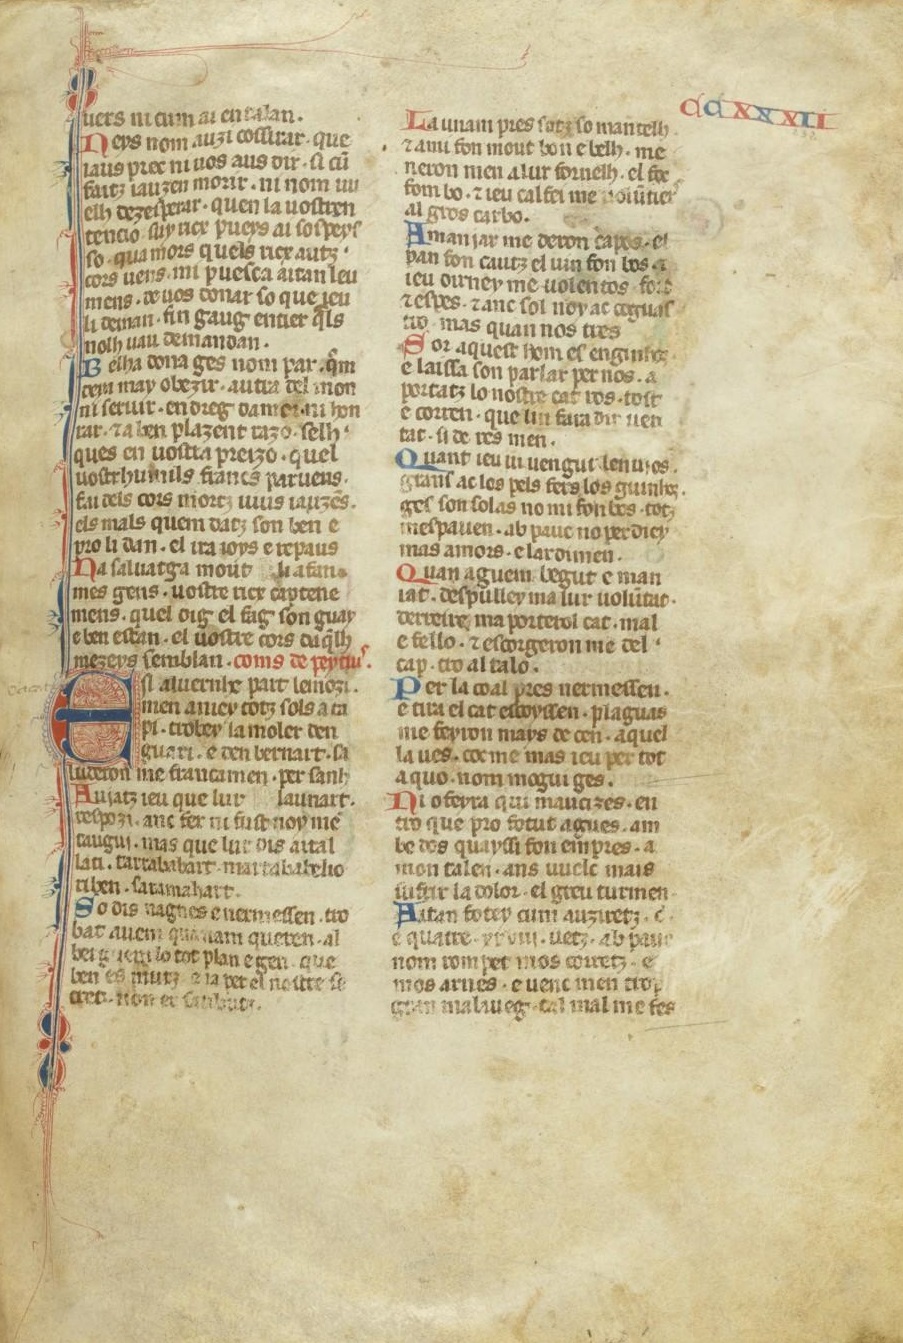 CCXXXII
uers ni cum ai en talan.
Neys nom auzi cossirar. que
iaus prec ni uos aus dir. si cū
faitz iauzen morir. ni nom uu
elh dezesperar. quen la uostren
tencio suy ricx pueys ai sospeys
so. quamors quels ricx autz
cors uens. mi puesca aitan leu
mens. de uos donar so que ieu
li deman. fin gaug entier q̄ls
nolh uau demandan.
Belha dona ges nom par. q̄m
deia may obezir. autra del mon
ni seruir. en dreg damor. ni hon
rar. ⁊ a ben plazent razo. selh
ques en uostra preizo. quel
uostrhumils francs paruens.
fai dels cors mortz uius iauzēs.
els mals quem datz son ben e
pro li dan. el ira ioys e repaus
Na saluatga mout li afan
mes gens. uostre ricx captene
mens. quel dig el fag son guay
e ben estan. el uostre cors cu q̄lh
mezeys semblan. coms de peytius.
En aluernhe part lemozi.
men aniey totz sols a ta
pi. trobey la moler den
guari. e den bernart. sa
luderon me francamen. per sanh
launart.
Auiatz ieu que lur
respozi. anc fer ni fust noy mē
taugui. mas que lur dis aital
lati. tarrababart. marrababelio
riben. saramahart.
So dis nagnes e nermessen. tro
bat auem que nam queren. al
berguem lo tot plan e gen. que
ben es mutz e ia per el nostre se
cret. non er saubutz.
La unam pres sotz so mantelh
⁊ ami fon mout bon e belh. me
neron men alur fornelh. el foc
fom bo. ⁊ ieu calfei me uolūtier
al gros carbo.
A manjar me deron capos. el
pan fon cautz el uin fon bos. ⁊
ieu dirney me uolentos fort
⁊ espes. ⁊ anc sol noy ac coguas
tro mas quan nos tres
Sor aquest hom es enginhos
e laissa son parlar per nos. a
portatz lo nostre cat ros. tost
e corren. que lin fara dir uer
tat. si de res men.
Quant ieu ui uengut lenuios.
grans ac los pels fers los guinhos.
ges son solas no mi fon bos. totz
mespauen. ab pauc no perdiey
mas amors. e lardimen.
Quan aguem begut e man
iat. despulley ma lur uolūtat.
derreire ma porterol cat. mal
e fello. ⁊ escorgeron me del
cap. tro al talo.
Per la coal pres nermessen.
e tira el cat escoyssen. plaguas
me feyron mays de cen. aquel
la ues. coc me mas ieu per tot
aquo. nom mogui ges.
Ni o feyra qui maucizes. en
tro que pro fotut agues. am
be dos quayssi fon empres. a
mon talen. ans uuelc mais
sufrir la dolor. el greu turmen
Aitan fotey cum auziretz. c.
e quatre. xx. viii. uetz. ab pauc
nom rompet mos corretz. e
mos arnes. e uenc men trop
gran malaueg. tal mal me fes